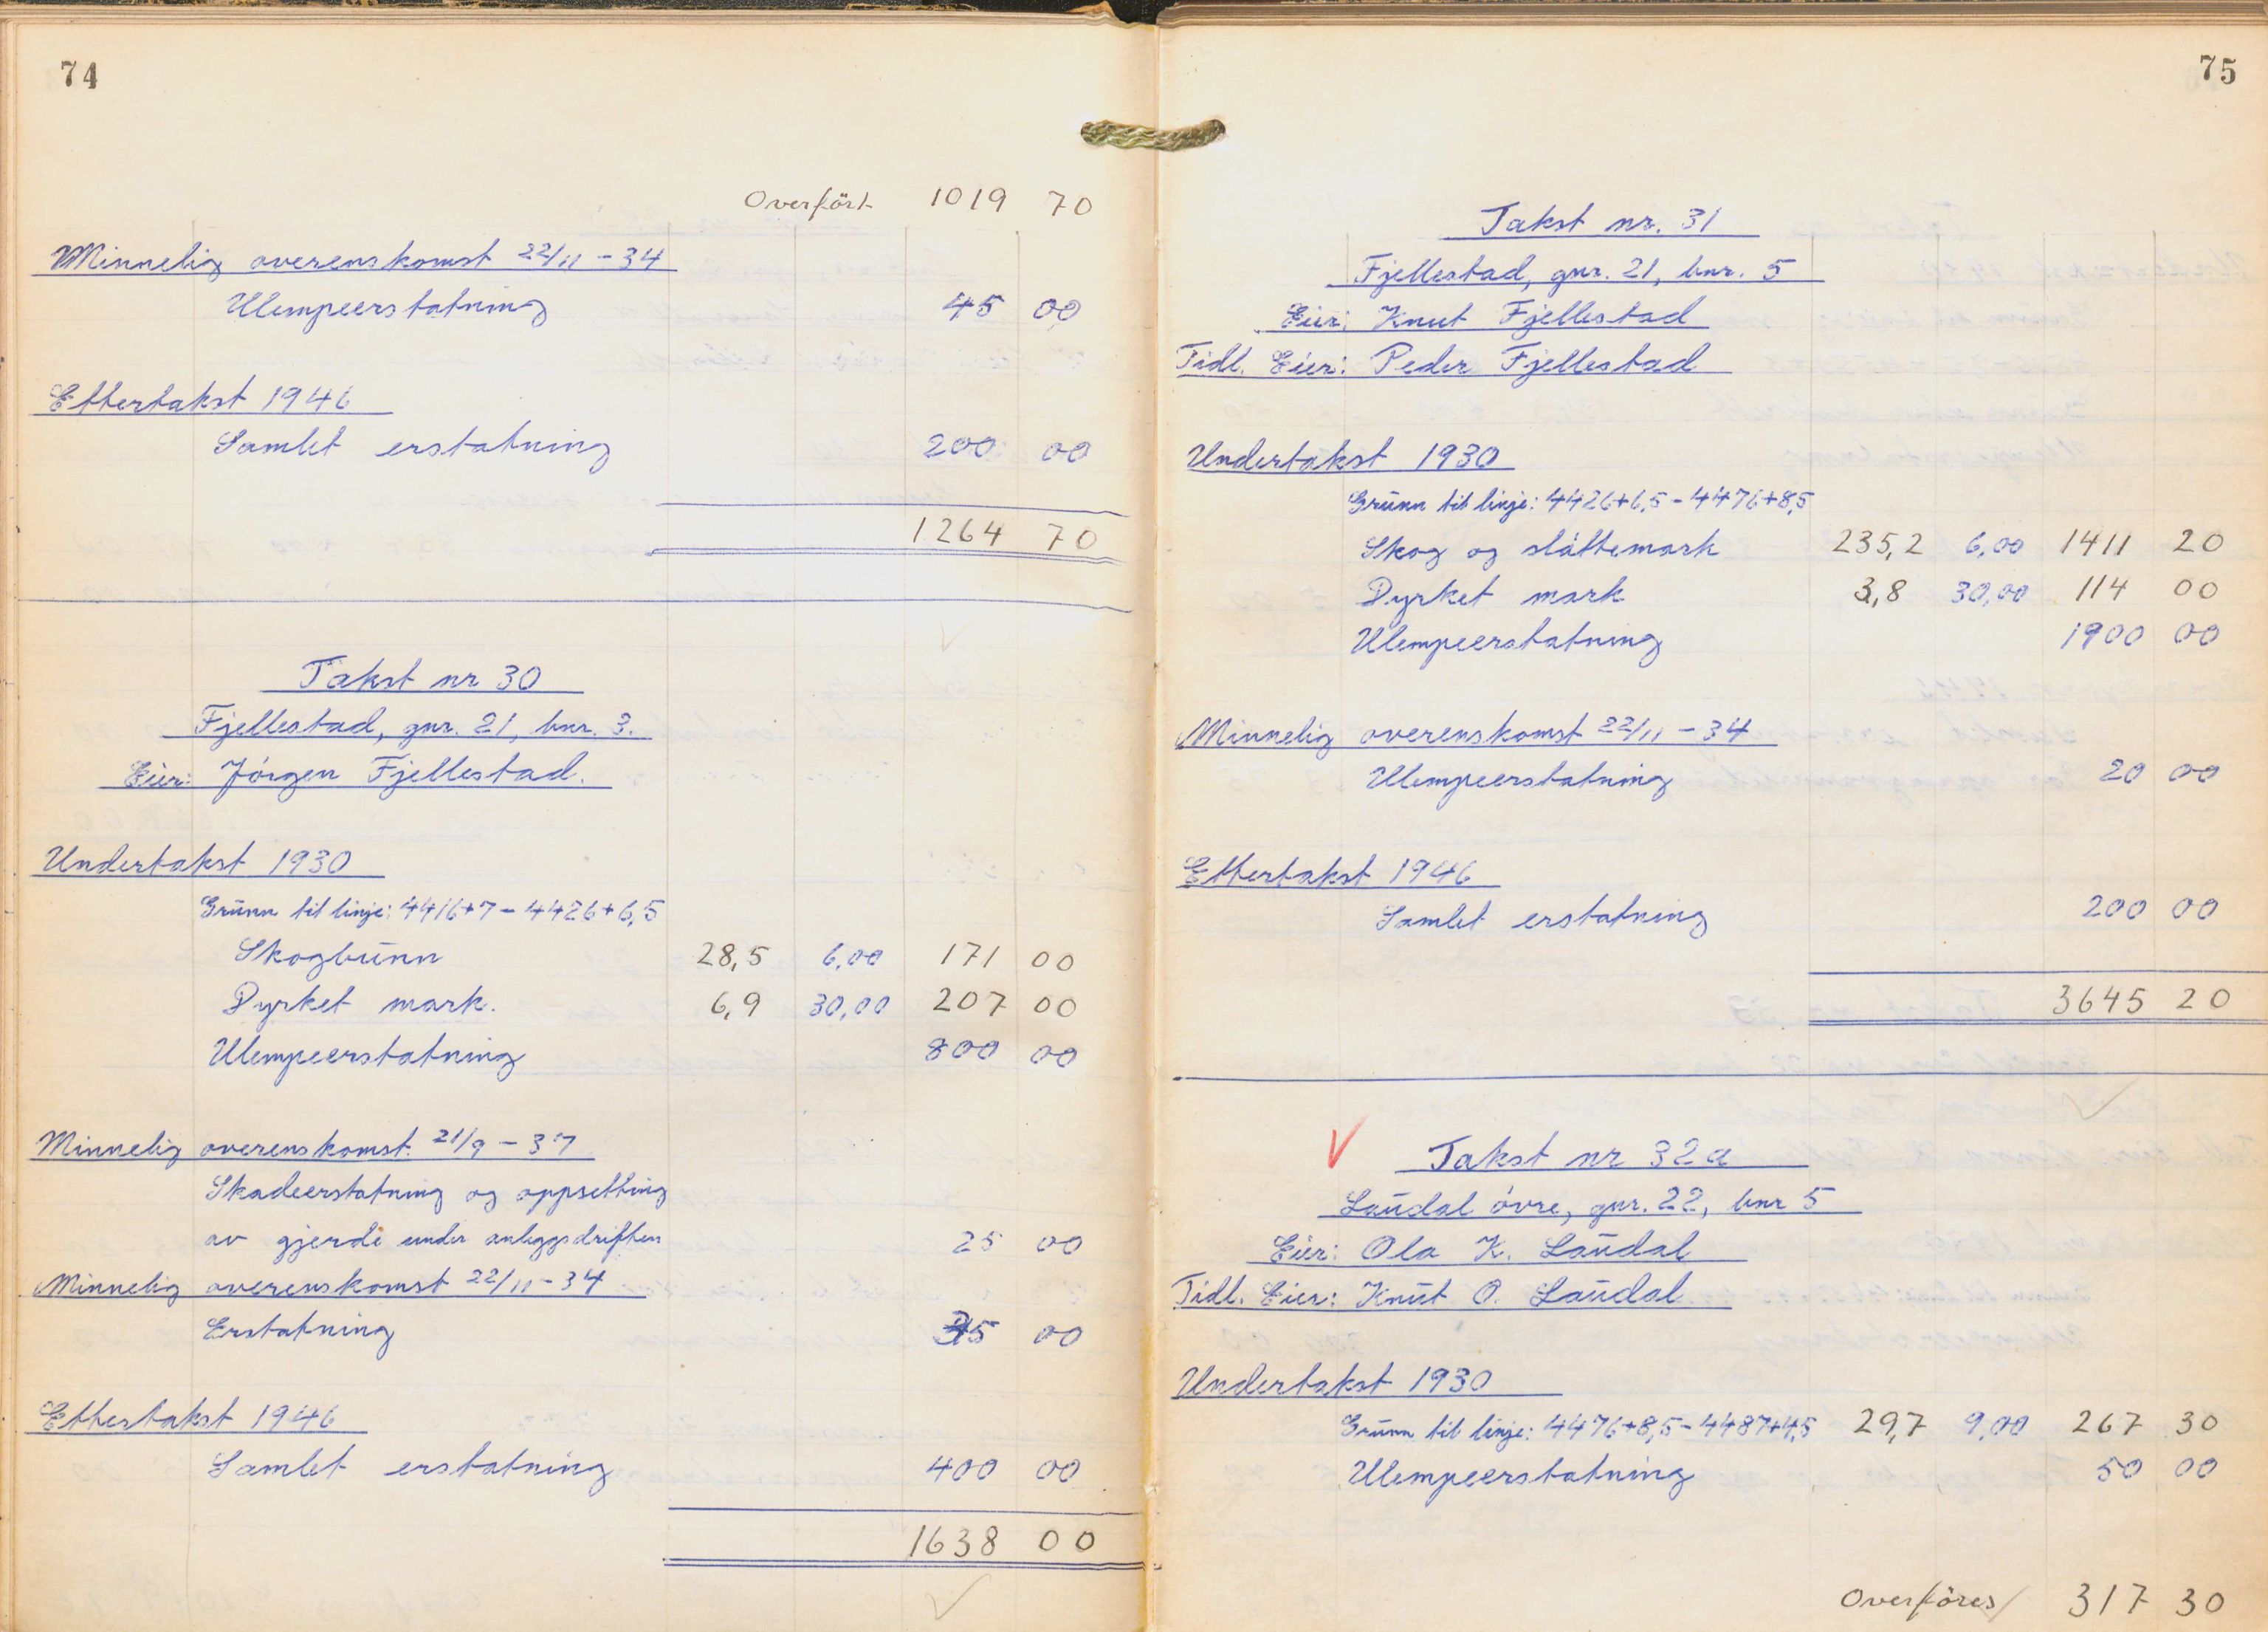 74
Overfört 1019 70
Minnelig overenskomst 22/11 - 34
Ulempeerstatning 45 00
Ettertakst 1946
Samlet erstatning 200 00
1264 70
Takst nr 30
Fjellestad, gnr. 21, bnr. 3.
Eier: Jörgen Fjellestad.
Undertakst 1930
Grunn til linje: 4416+7 - 4426+6,5
Skogbunn 28,5 6,00 171 00
Dyrket mark. 6,9 30,00 207 00
Ulempeerstatning 800 00
Minnelig overenskomst. 21/9 - 37
Skadeerstatning og oppsetting
av gjerde under anleggsdriften 25 00
Minnelig overenskomst 22/11 - 34
Erstatning 35 00
Ettertakst 1946
Samlet erstatning 400 00
1638 00
75
Takst nr. 31
Fjellestad, gnr. 21, bnr. 5
Eier: Knut Fjellestad
Tidl. Eier: Peder Fjellestad
Undertakst 1930
Grunn til linje: 4426+6,5 - 4476+8,5
Skog og slåttemark 235,2 6,00 1411 20
Dyrket mark 3,8 30,00 114 00
Ulempeerstatning 1900 00
Minnelig overenskomst 22/11 - 34
Ulempeerstatning 20 00
Ettertakst 1946
Samlet erstatning 200 00
3645 20
Takst nr 32a
Laudal övre, gnr. 22, bnr 5
Eier: Ola K. Laudal
Tidl. Eier: Knut O. Laudal
Undertakst 1930
Grunn til linje: 4476+8,5 - 4487+4,5 29,7 9,00 267 30
Ulempeerstatning 50 00
Overföres 317 30